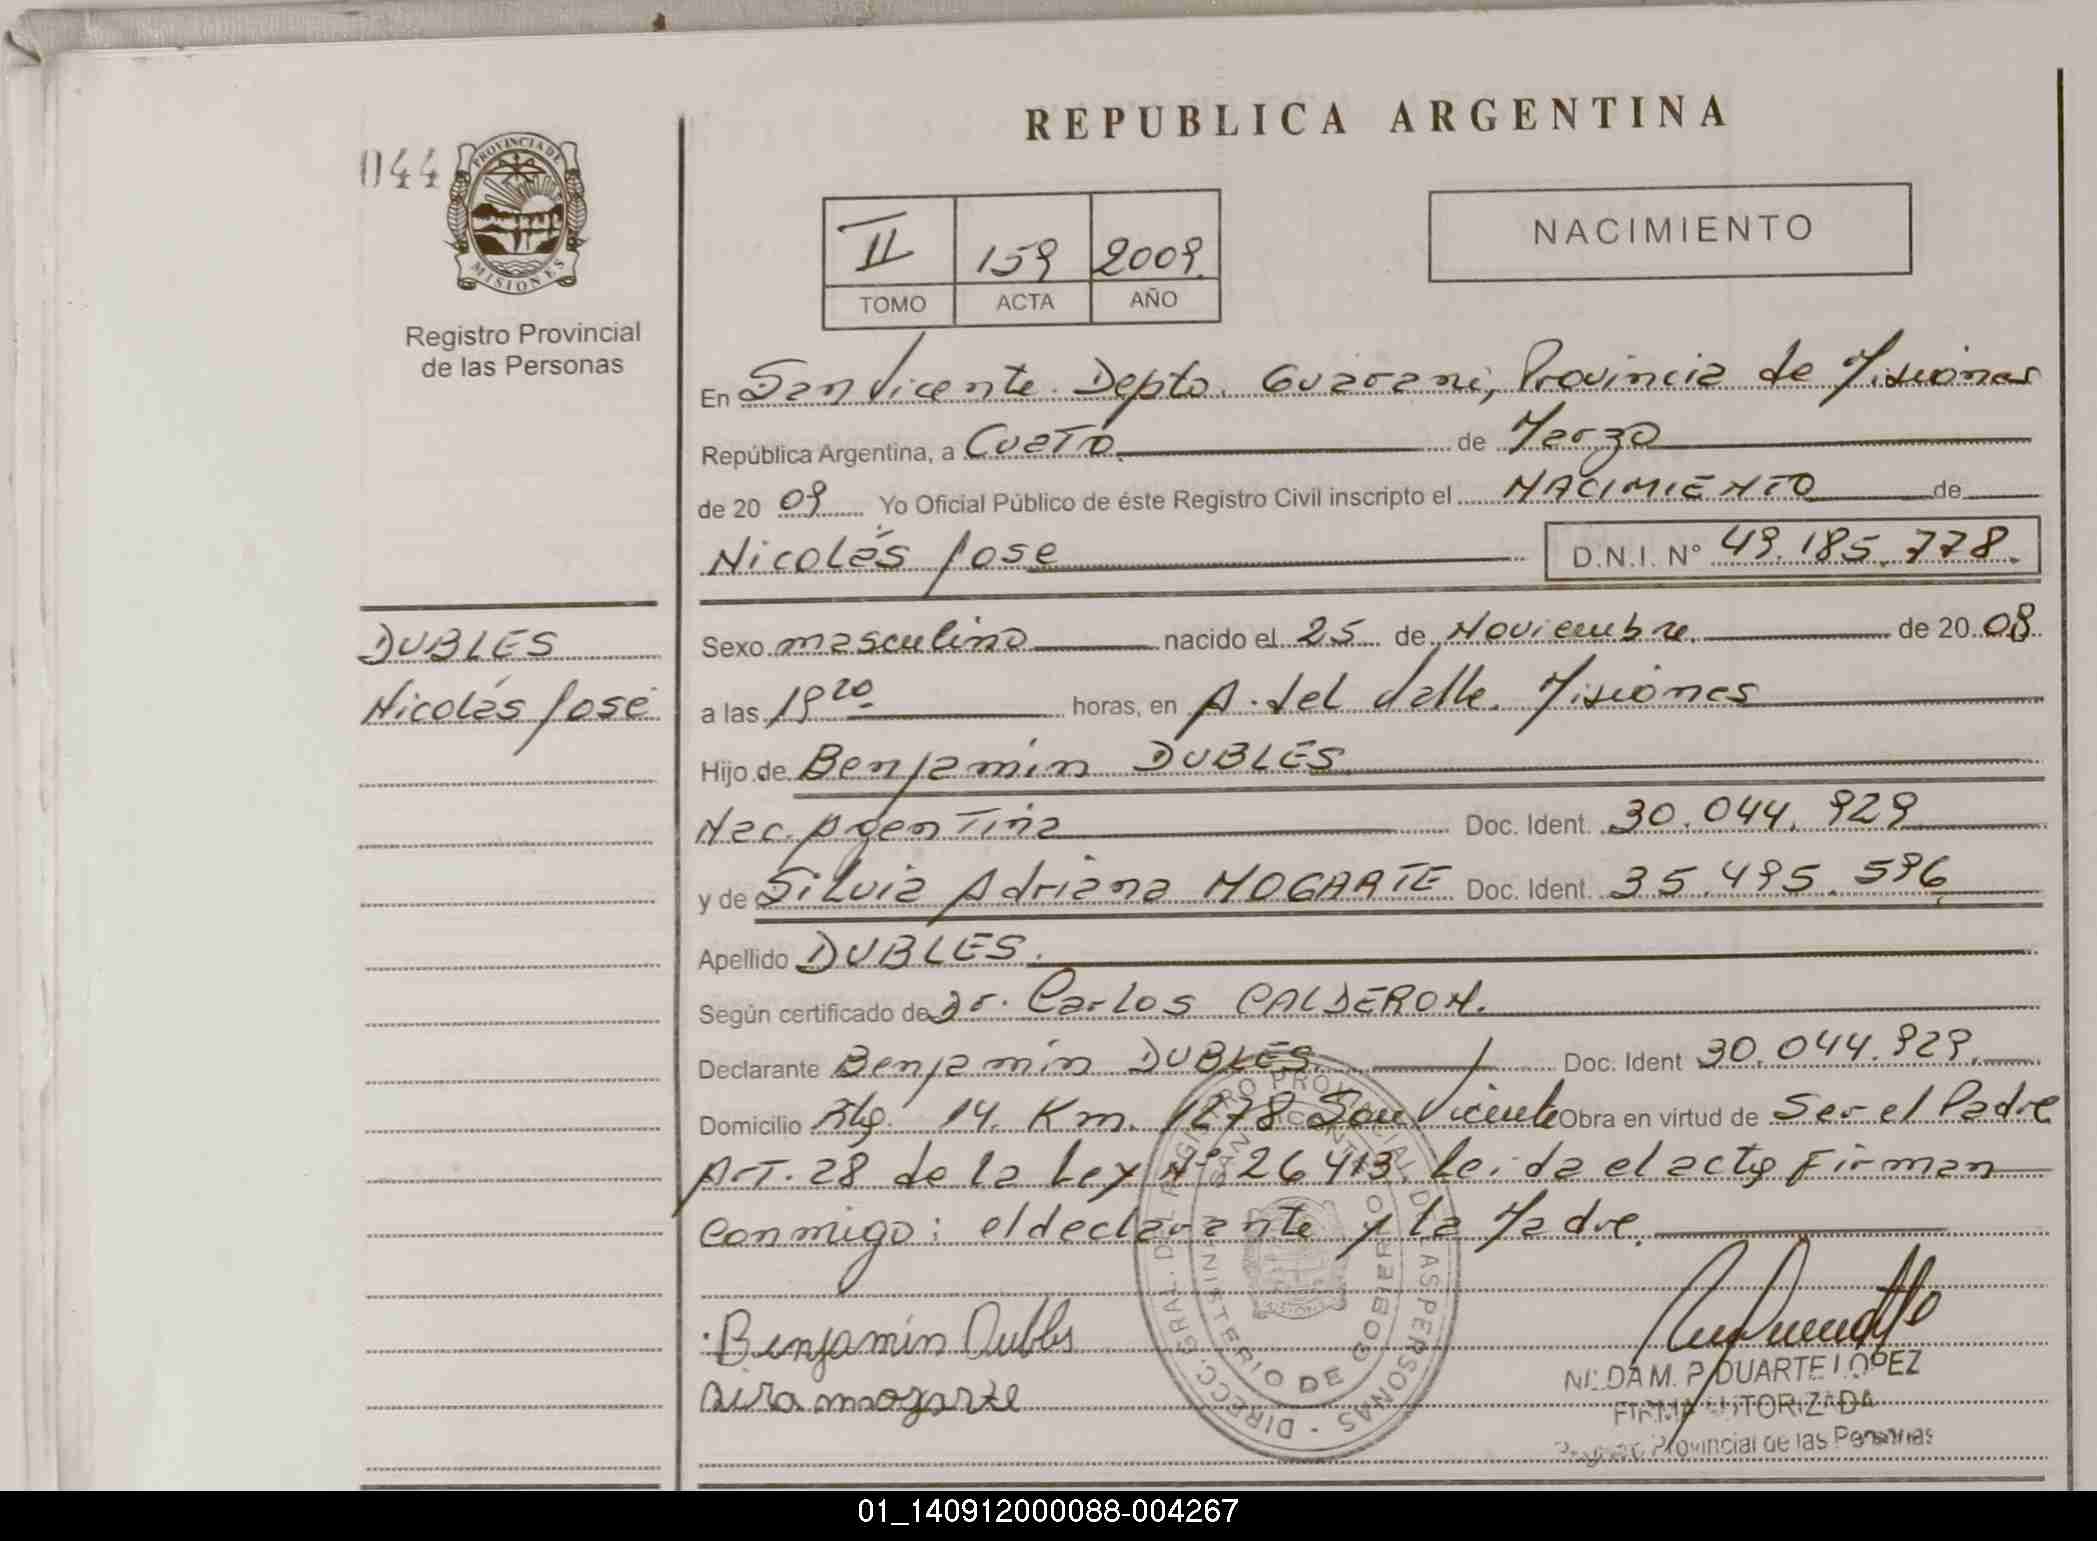 REPUBLICA ARGENTINA
044
PROVINCIA DE
MISIONES
Registro Provincial
de las Personas
II 159 2009
TOMO ACTA AÑO
NACIMIENTO
En San Vicente Depto. Guarani, Provincia de Misiones
República Argentina, a Cuatro de Marzo
de 20 09 Yo Oficial Público de éste Registro Civil inscripto el NACIMIENTO de
Nicolás Jose D.N.I. N° 49.185.778.
DUBLES
Nicolás José
Sexo masculino nacido el 25 de Noviembre de 20 08
a las 19 20 horas, en A. del Valle. Misiones
Hijo de Benjamin DUBLES
Nac. Argentina Doc. Ident. 30.044.929
y de Silvia Adriana MOGARTE Doc. Ident. 35.495.596
Apellido DUBLES.
Según certificado de Dr. Carlos CALDERON.
Declarante Benjamin DUBLES Doc. Ident 30.044.929.
Domicilio Km. 1278 San Vicente Obra en virtud de Ser el Padre
Art. 28 de la Ley Nº 26413. Leida el acta Firman
conmigo: el declarante y la Madre.
Benjamin Dubles
mogarte
DIRECC. GRAL. DEL REGISTRO PROVINCIAL DE LAS PERSONAS
MINISTERIO DE GOBIERNO
SAN VICENTE
M. P. DUARTE LOPEZ
FIRMA AUTORIZADA
Registro Provincial de las Personas
01_140912000088-004267